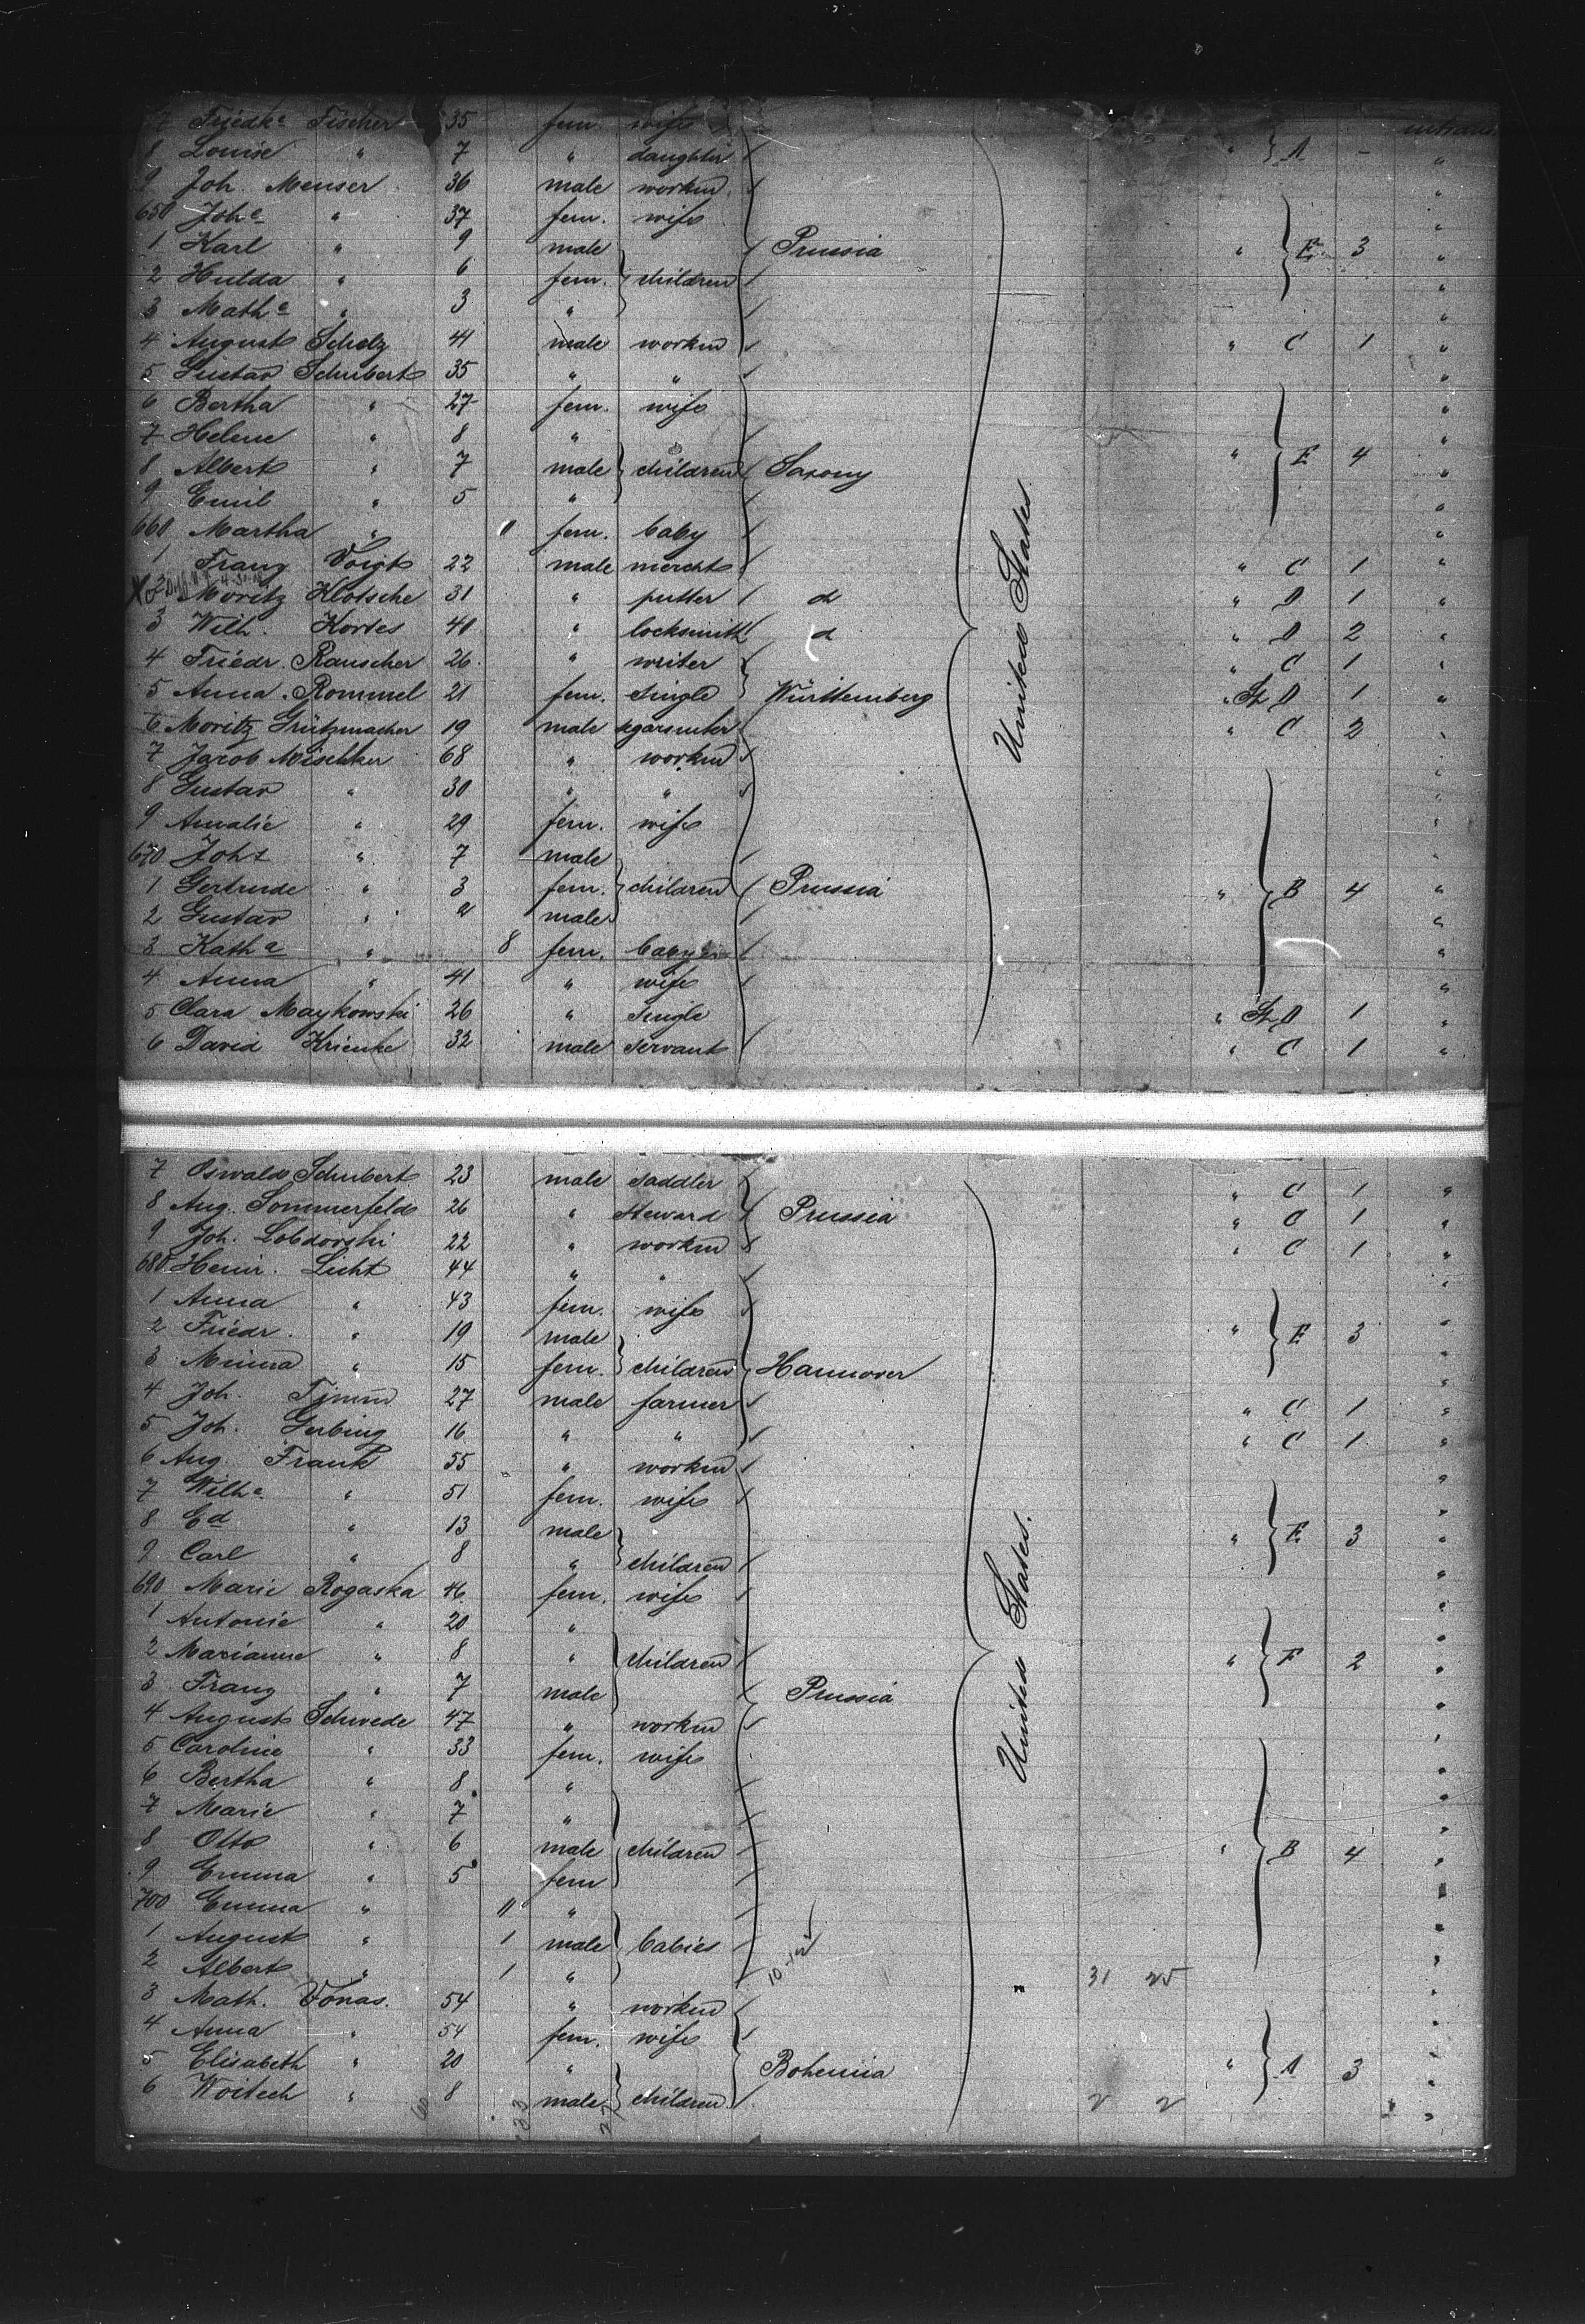 7 Friedke Fischer 35 fem. wife
8 Louise " 7 " daughter " A - "
9 Joh. Menser 36 male workm "
650 Johe " 37 fem. wife "
1 Karl " 9 male Prussia " E 3 "
2 Hulda " 6 fem. children "
3 Mathe " 3 " "
4 August Scholz 41 male workm " C 1 "
5 Gustav Schubert 35 " " "
6 Bertha " 27 fem. wife "
7 Helene " 8 " "
8 Albert " 7 male children Saxony " E 4 "
9 Emil " 5 " "
660 Martha " fem. baby "
1 Franz Voigt 22 male mercht " C 1 "
X 2 Moritz Klotsche 31 " putter d " D 1 "
3 Wilh. Kortes 40 " locksmith d " D 2 "
4 Friedr. Rauscher 26 " writer " C 1 "
5 Anna Rommel 21 fem. single Württemberg " D 1 "
6 Moritz Grützmacher 19 male " C 2 "
7 Jacob Mischker 68 " workm "
8 Gustav " 30 " " "
9 Amalie " 29 fem. wife "
670 Joh " 7 male "
1 Gertrude " 3 fem. children Prussia " B 4 "
2 Gustav " male "
3 Katha " 8 fem. baby "
4 Anna " 41 " wife "
5 Clara Maykowski 26 " single " D 1 "
6 David Krienke 32 male servant " C 1 "
United States
7 Oswald Schubert 23 male saddler " C 1 "
8 Aug. Sommerfeld 26 " steward Prussia " C 1 "
9 Joh. Lobdovski 22 " workm " C 1 "
680 Heinr. Licht 44 " " "
1 Anna " 43 fem. wife "
2 Friedr. " 19 male " E 3 "
3 Minna " 15 fem. children Hannover "
4 Joh. 27 male farmer " C 1 "
5 Joh. Gerbing 16 " " " C 1 "
6 Aug. Frank 55 " workm "
7 Wilhe " 51 fem. wife "
8 Ed " 13 male " E 3 "
9 Carl " 8 " children "
690 Marie Rogaska 46 fem. wife "
1 Antonie " 20 " "
2 Marianne " 8 " children " F 2 "
3 Franz " 7 male Prussia "
4 August Schwede 47 " workm "
5 Caroline " 33 fem. wife "
6 Bertha " 8 " "
7 Marie " 7 " "
8 Otto " 6 male children " B 4 "
9 Emma " 5 fem "
700 Emma " 11 " "
1 August " 1 male babies "
2 Albert " 1 " " 31 25 "
3 Math. Vonas. 54 " workm "
4 Anna " 54 fem. wife "
5 Elisabeth " 20 " Bohemia " A 3 "
6 Woitech " 8 male children 2 2 "
United States.